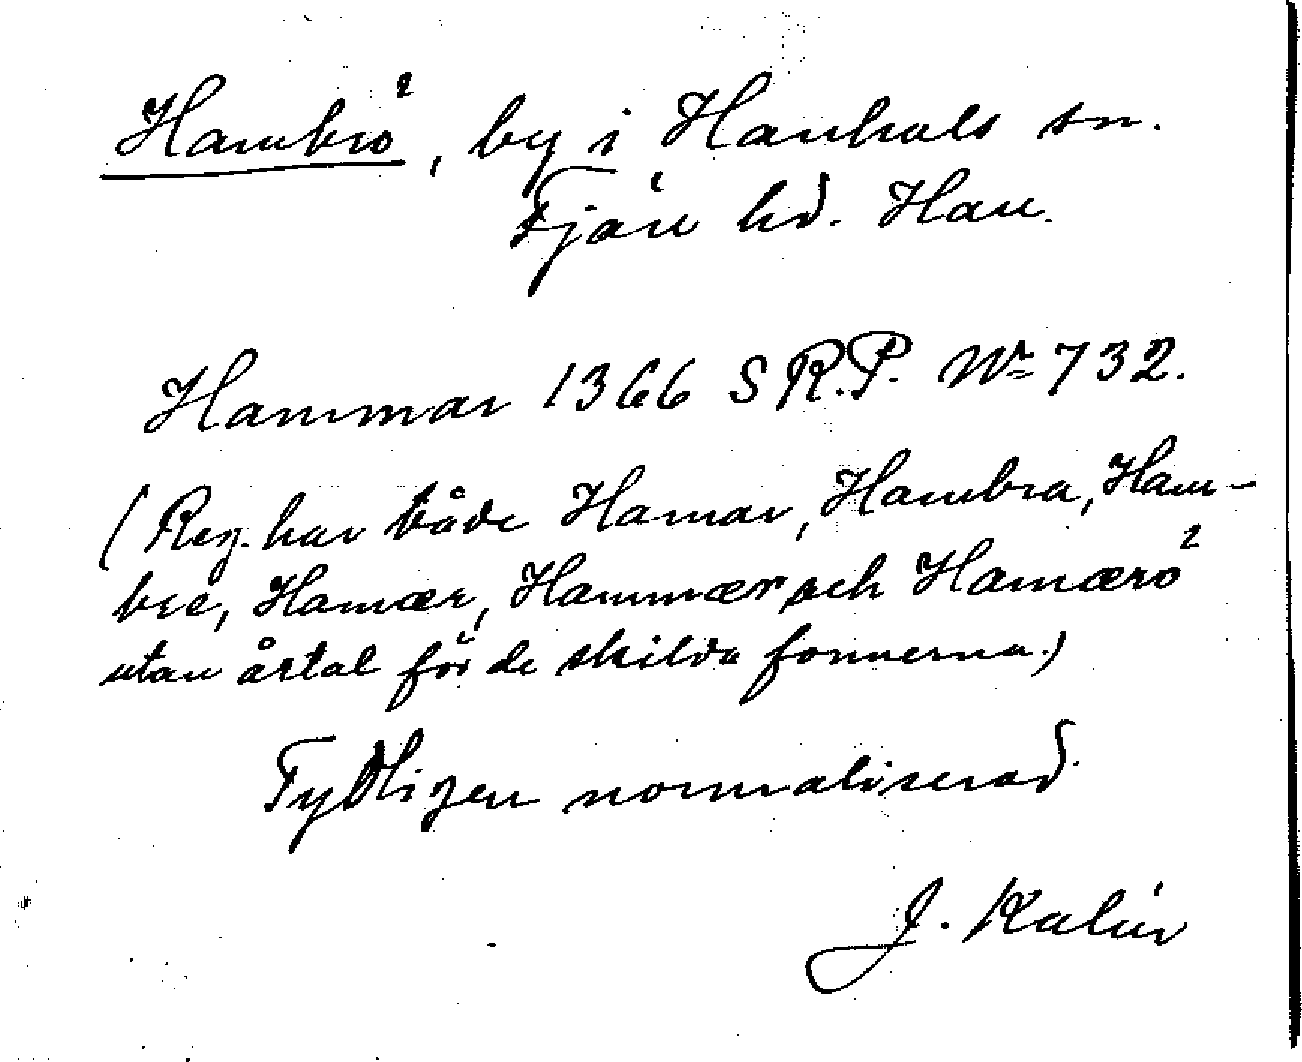 Hambrō, by i Hanhals sn.
Fjäre hd. Hall.
Hammar 1366 S R.P. Nr 732.
(Reg. har både Hamar, Hambra, Ham-
bre, Hamær, Hammær och Hamærō
utan årtal för de skilda formerna.)
Tydligen normaliserad.
J. Kalén